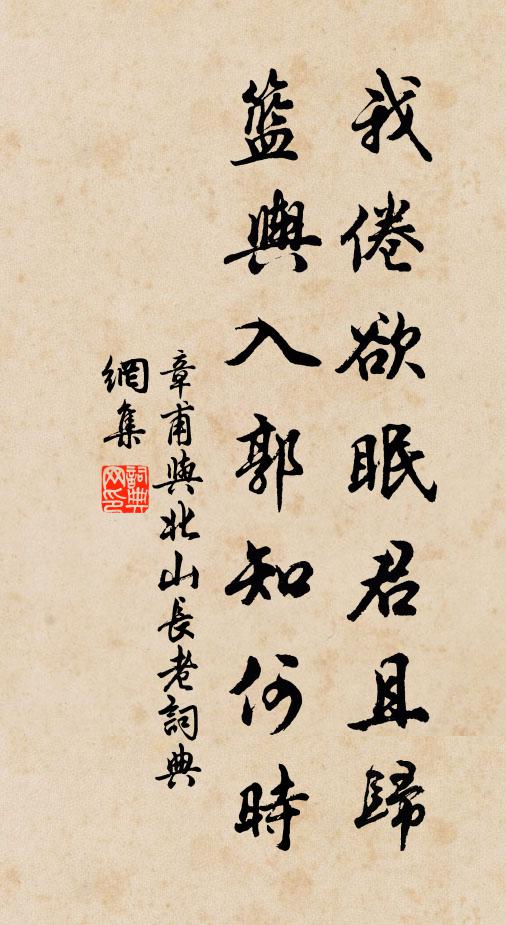 我倦欲眠君且歸
籃輿入郭知何時
章甫與北山長老詞典
網集
詞典
网印